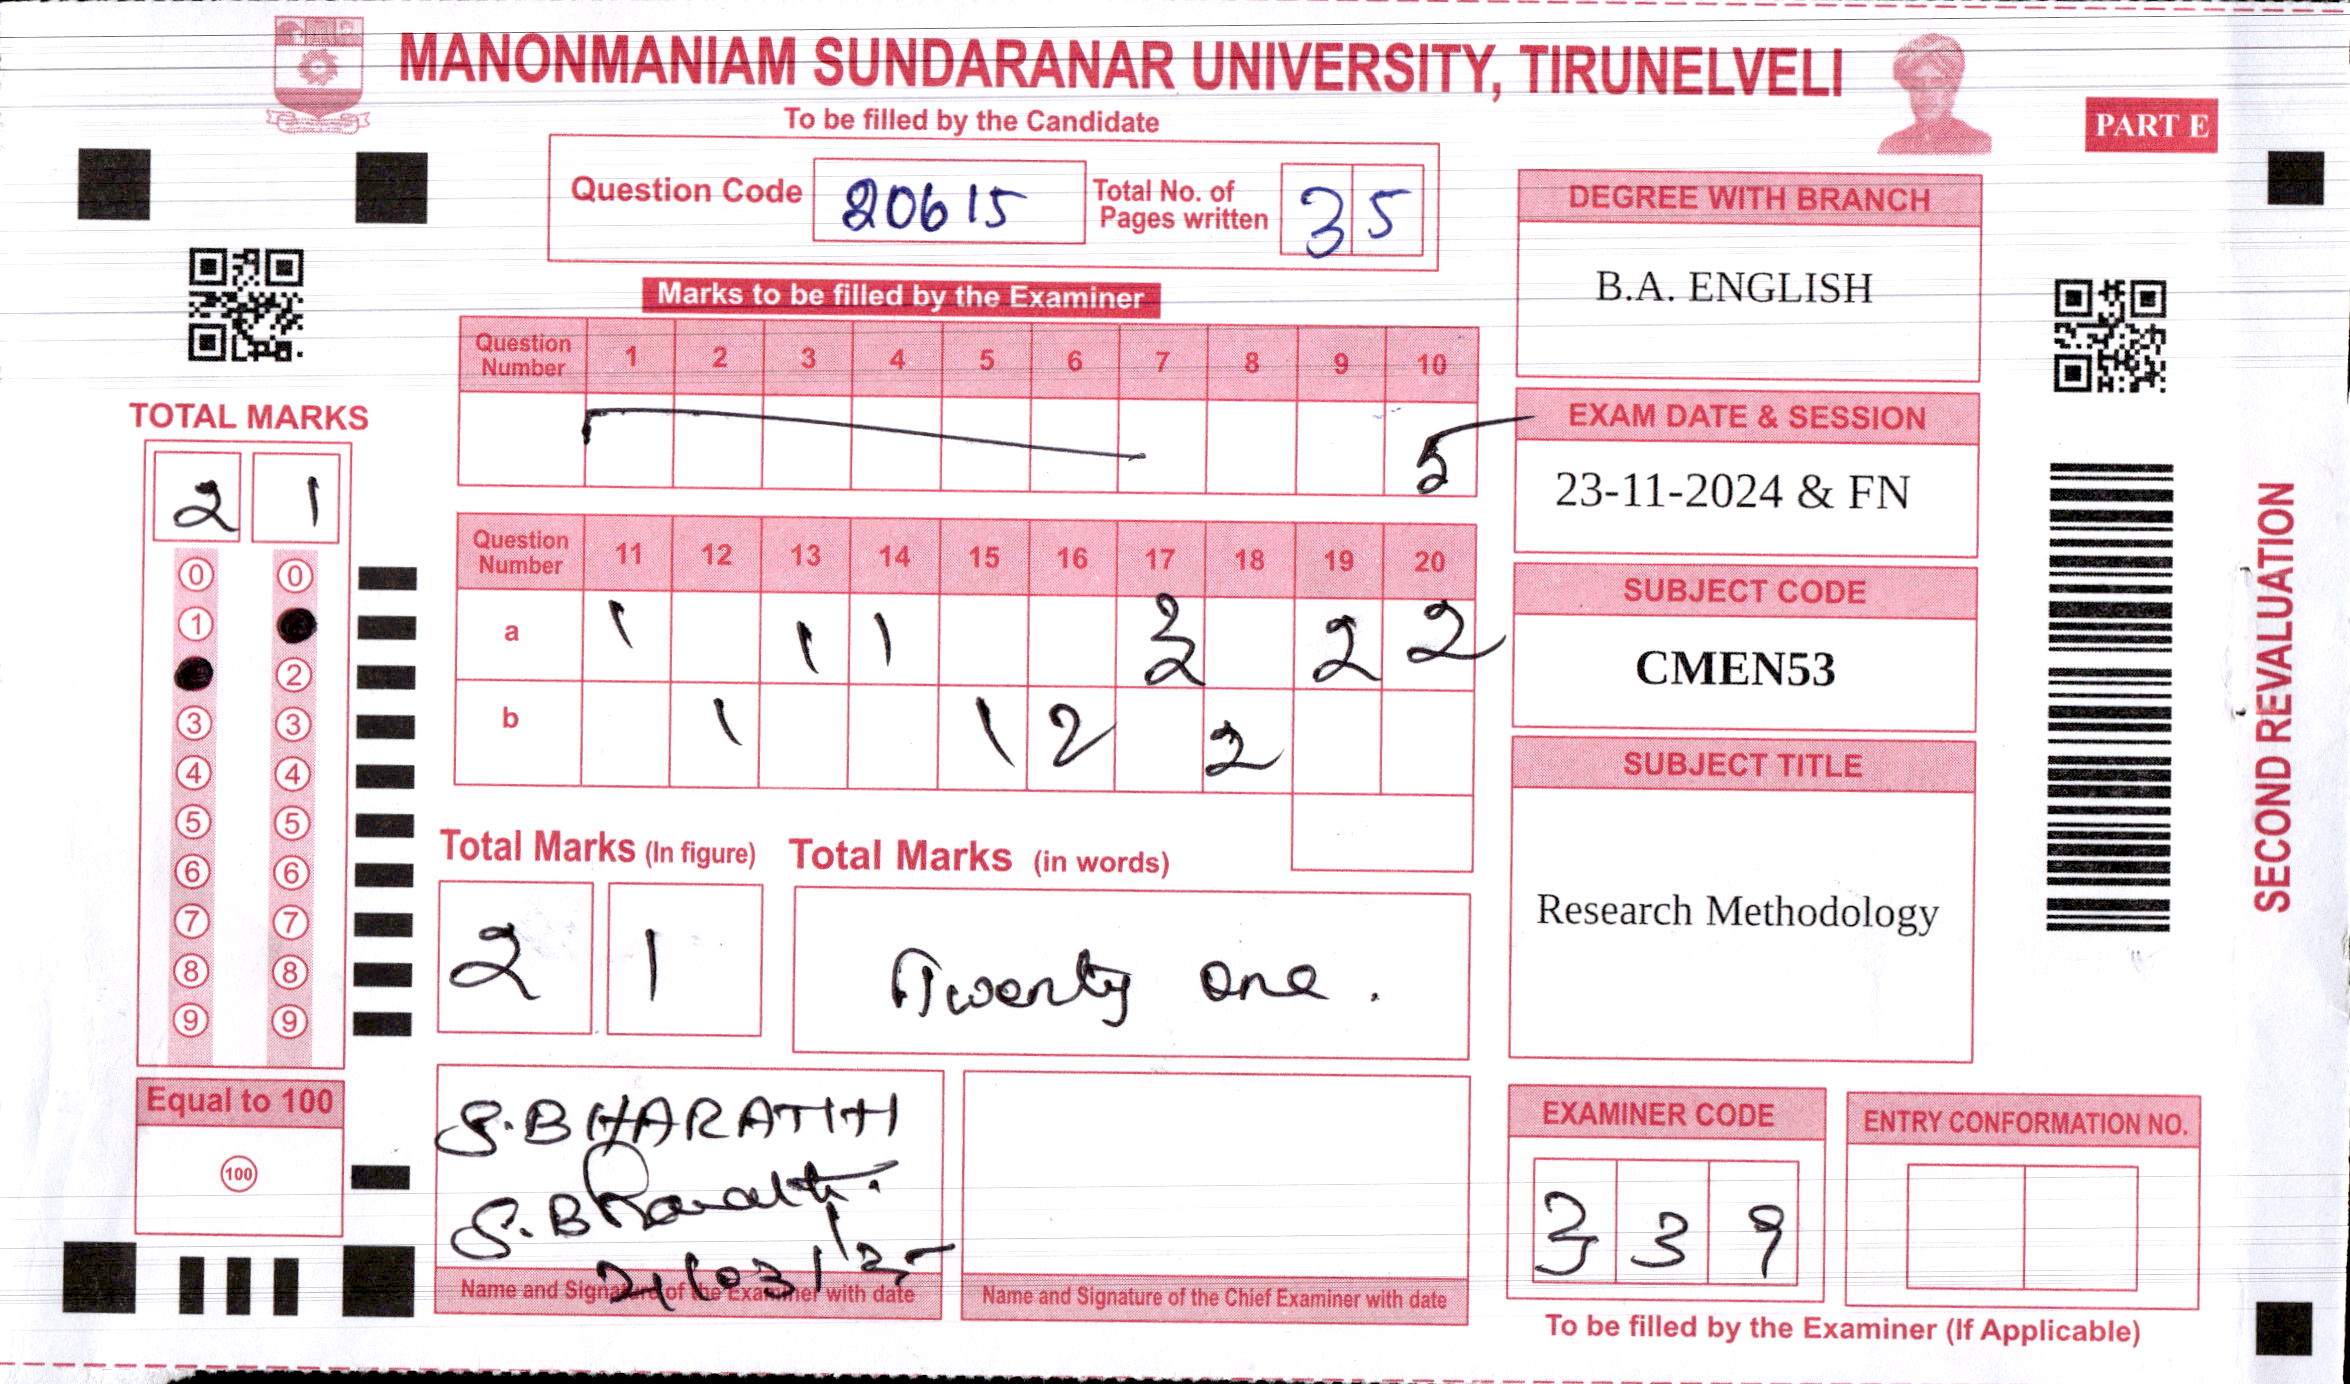 MANONMANIAM SUNDARANAR UNIVERSITY, TIRUNELVELI
To be filled by the Candidate
PART E
Question Code 20615 Total No. of Pages written 35
Marks to be filled by the Examiner
Question Number 1 2 3 4 5 6 7 8 9 10
5
Question Number 11 12 13 14 15 16 17 18 19 20
a 1 1 1 3 2 2
b 1 1 2 2
TOTAL MARKS
2 1
0 0
1
2
3 3
4 4
5 5
6 6
7 7
8 8
9 9
Equal to 100
100
Total Marks (In figure) Total Marks (in words)
2 1 Twenty one.
S. BHARATHI
S. Bharathi
21/03/25
Name and Signature of the Examiner with date
Name and Signature of the Chief Examiner with date
DEGREE WITH BRANCH
B.A. ENGLISH
EXAM DATE & SESSION
23-11-2024 & FN
SUBJECT CODE
CMEN53
SUBJECT TITLE
Research Methodology
EXAMINER CODE
3 3 9
ENTRY CONFORMATION NO.
To be filled by the Examiner (If Applicable)
SECOND REVALUATION